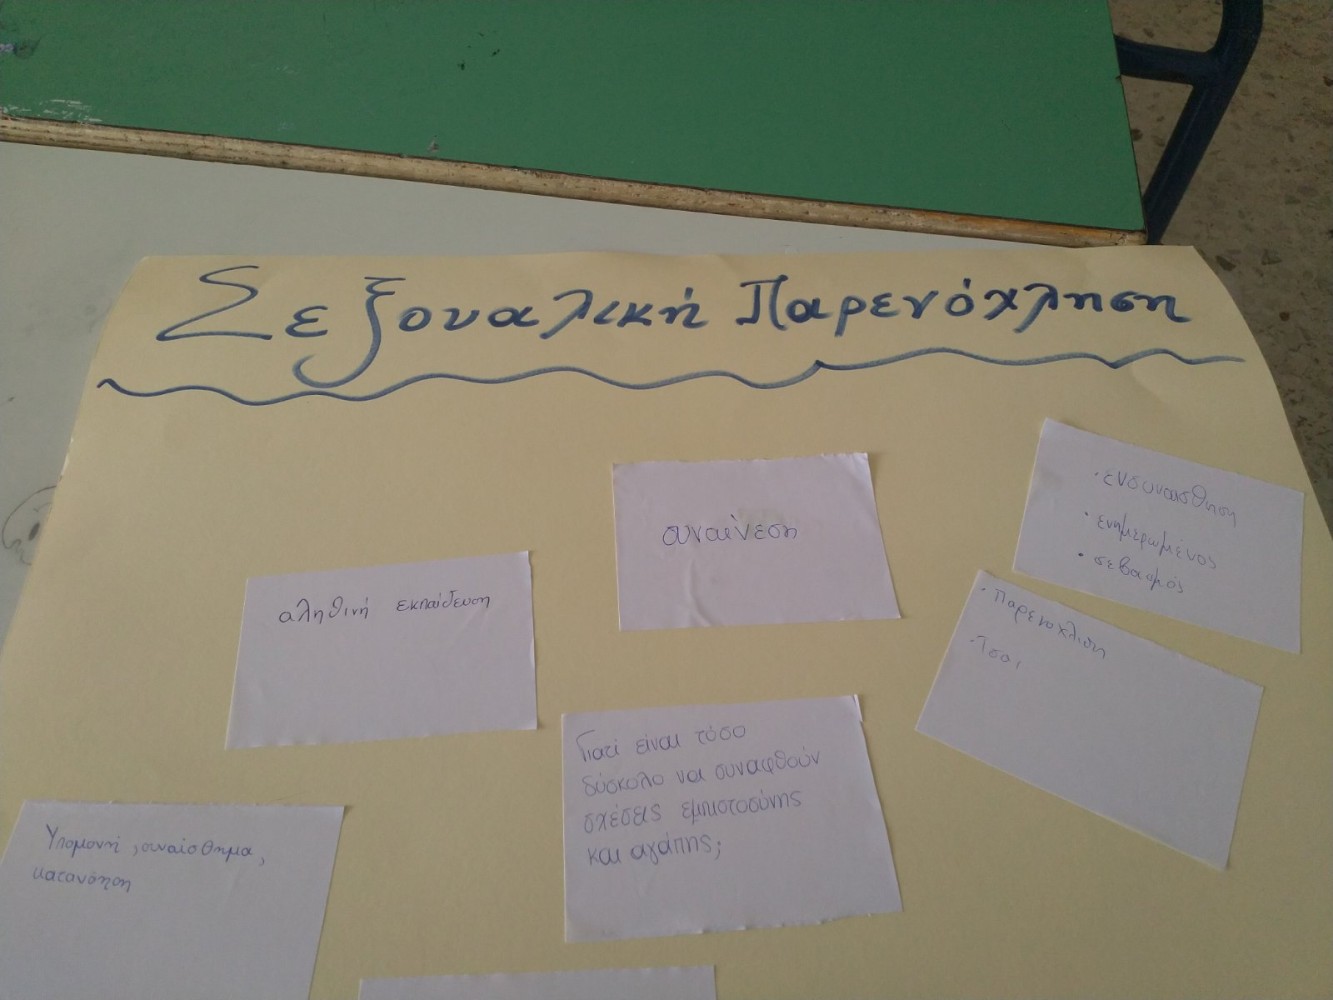 Σεξουαλική Παρενόχληση
συναίνεση
· ενσυναίσθηση
· ενημερωμένος
· σεβασμός
αληθινή εκπαίδευση
· παρενοχλιση
Γιατί είναι τόσο
δύσκολο να συναφθούν
σχέσεις εμπιστοσύνης
και αγάπης;
Υπομονή, συναίσθημα,
κατανόηση